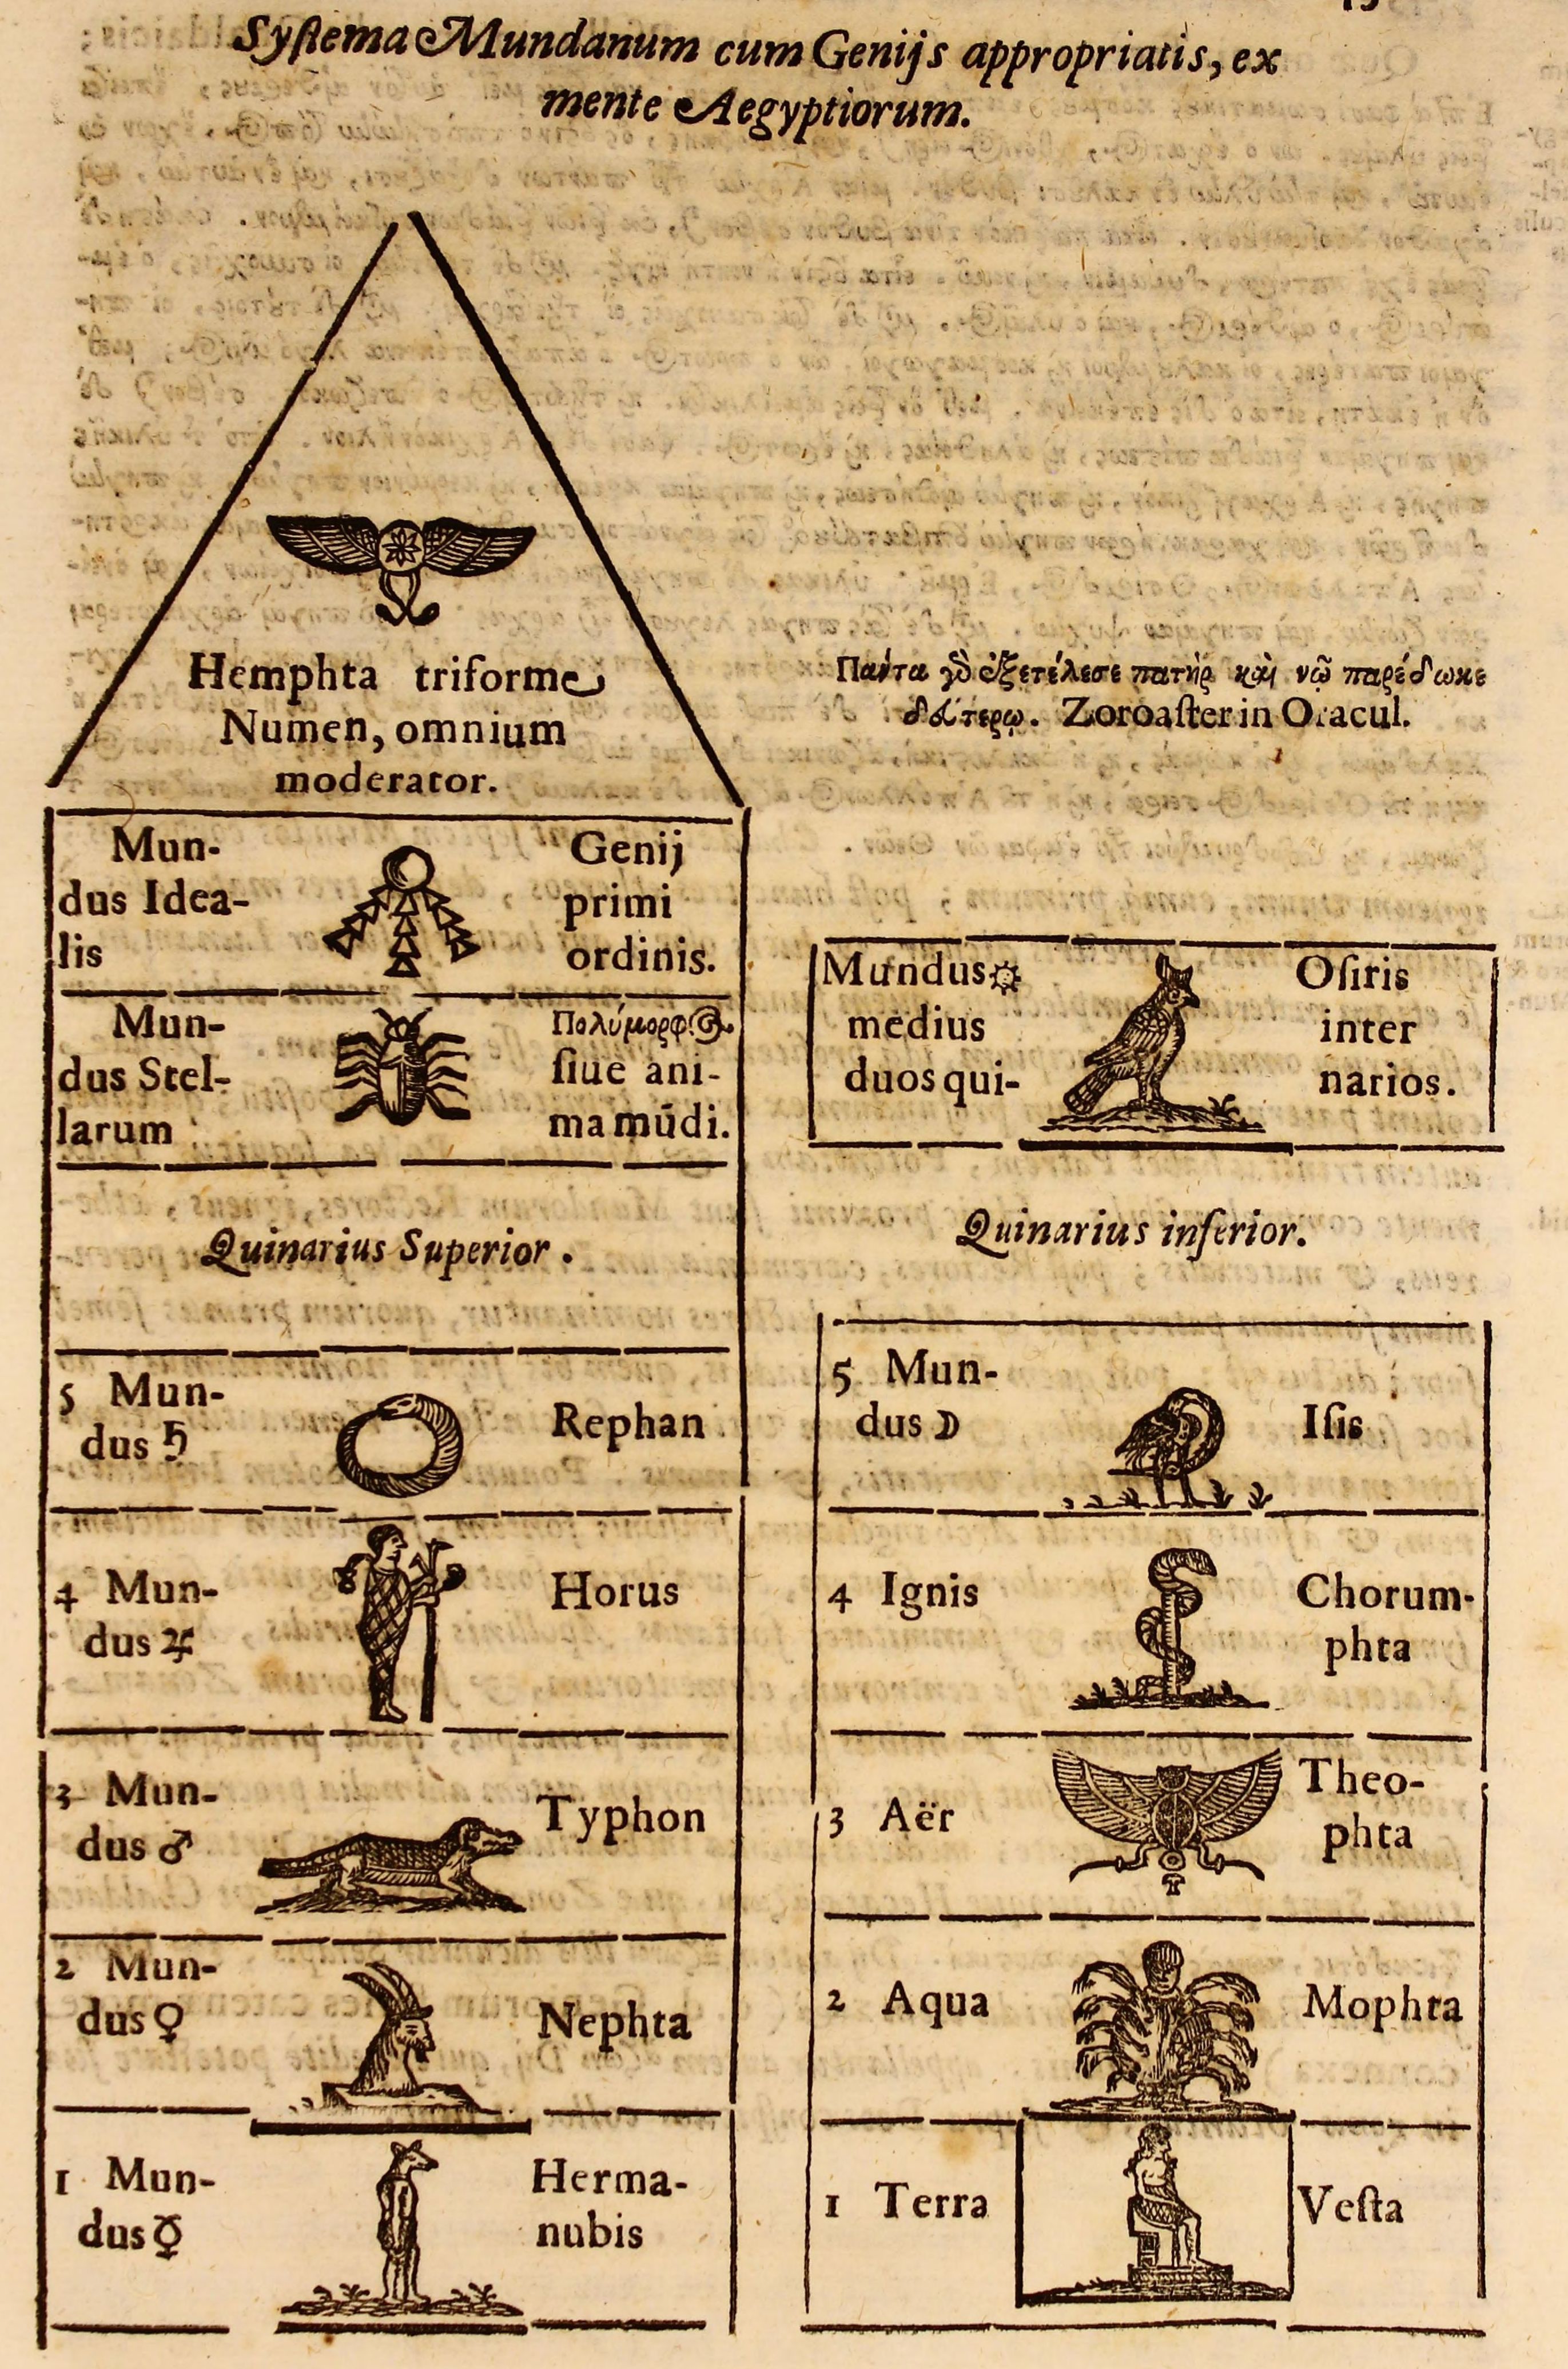 Syſtema Mundanum cum Genijs appropriatis, ex
mente Aegyptiorum.
Hemphta triforme
Numen, omnium
moderator.
Πάντα γὸ ἐξετέλεσε πατὴρ καὶ νῷ παρέδωκε
δευτέρῳ. Zoroaſter in Oracul.
Mun-
dus Idea-
lis
Genij
primi
ordinis.
Mun-
dus Stel-
larum
Πολύμορφος
ſiue ani-
ma mūdi.
Mundus ☼
medius
duos qui-
Oſiris
inter
narios.
Quinarius Superior.
5 Mun-
dus ♄
Rephan
4 Mun-
dus ♃
Horus
3 Mun-
dus ♂
Typhon
2 Mun-
dus ♀
Nephta
1 Mun-
dus ☿
Herma-
nubis
Quinarius inferior.
5 Mun-
dus ☽
Iſis
4 Ignis
Chorum-
phta
3 Aër
Theo-
phta
2 Aqua
Mophta
1 Terra
Veſta